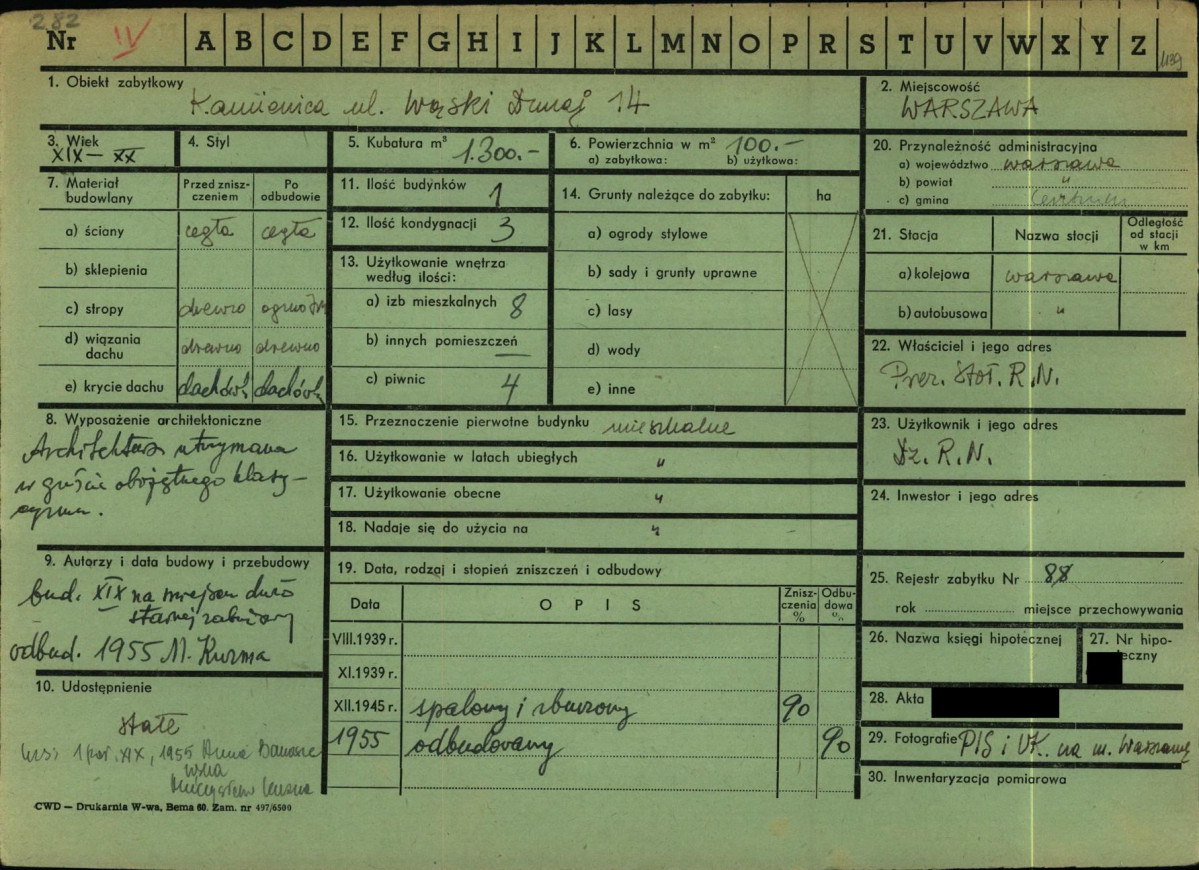 282
Nr IV A B C D E F G H I J K L M N O P R S T U V W X Y Z 1139
1. Obiekt zabytkowy
Kamienica ul. Wąski Dunaj 14
2. Miejscowość
WARSZAWA
3. Wiek
XIX – XX
4. Styl
5. Kubatura m³ 1.300.-
6. Powierzchnia w m² 100.-
a) zabytkowa: b) użytkowa:
20. Przynależność administracyjna
a) województwo warszawa
b) powiat "
c) gmina
7. Materiał budowlany
Przed zniszczeniem
Po odbudowie
a) ściany cegła cegła
b) sklepienia
c) stropy drewno
d) wiązania dachu drewno drewno
e) krycie dachu dachówk dachówk
11. Ilość budynków 1
12. Ilość kondygnacji 3
13. Użytkowanie wnętrza
według ilości:
a) izb mieszkalnych 8
b) innych pomieszczeń —
c) piwnic 4
14. Grunty należące do zabytku: ha
a) ogrody stylowe
b) sady i grunty uprawne
c) lasy
d) wody
e) inne
21. Stacja Nazwa stacji Odległość od stacji w km
a) kolejowa warszawa
b) autobusowa "
22. Właściciel i jego adres
Prez. Stoł. R.N.
8. Wyposażenie architektoniczne
Architektura utrzymana
w guście obojętnego klasy-
cyzmu.
15. Przeznaczenie pierwotne budynku mieszkalne
16. Użytkowanie w latach ubiegłych "
17. Użytkowanie obecne "
18. Nadaje się do użycia na "
23. Użytkownik i jego adres
Dz. R.N.
24. Inwestor i jego adres
9. Autorzy i data budowy i przebudowy
bud. XIX na miejscu dużo
starszej zabudowy
odbud. 1955 M. Kuzma
19. Data, rodzaj i stopień zniszczeń i odbudowy
Data OPIS Zniszczenia % Odbudowa %
VIII.1939 r.
XI.1939 r.
XII.1945 r. spalony i zburzony 90
1955 odbudowany 90
25. Rejestr zabytku Nr 88
rok miejsce przechowywania
26. Nazwa księgi hipotecznej
27. Nr hipoteczny
28. Akta
29. Fotografie PIS i UK. na m. Warszawę
30. Inwentaryzacja pomiarowa
10. Udostępnienie
stałe
1 poł. XIX, 1955 Anna
Mieczysław Kuzma
CWD — Drukarnia W-wa, Bema 60. Zam. nr 497/6500